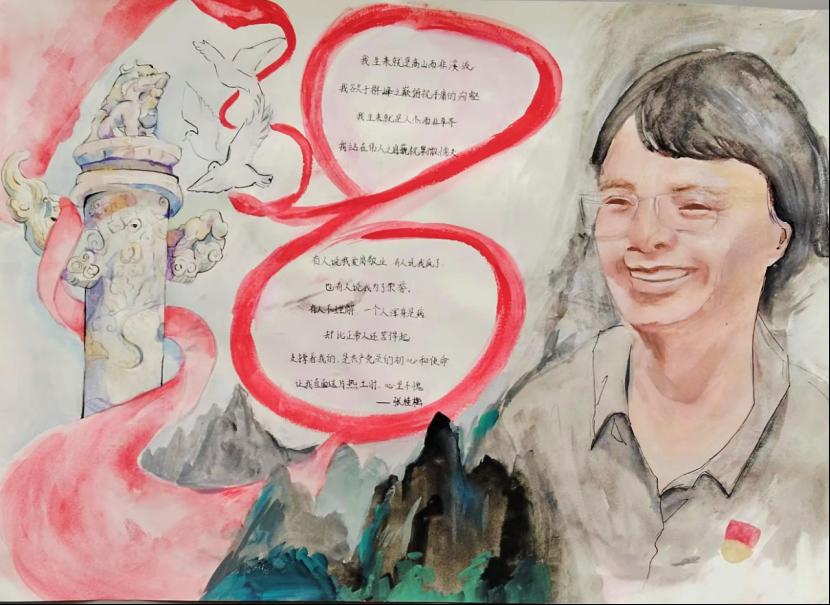 我生来就是高山而非溪流
我欲于群峰之巅俯视平庸的沟壑
我生来就是人杰而非草芥
我站在伟人之肩藐视卑微的懦夫
有人说我爱岗敬业 有人说我疯了
也有人说我为了荣誉。
有人不理解，一个人浑身是病
却比正常人还苦得起
支撑着我的，是共产党员的初心和使命
让我直面这片热土时，心里不愧
——张桂梅